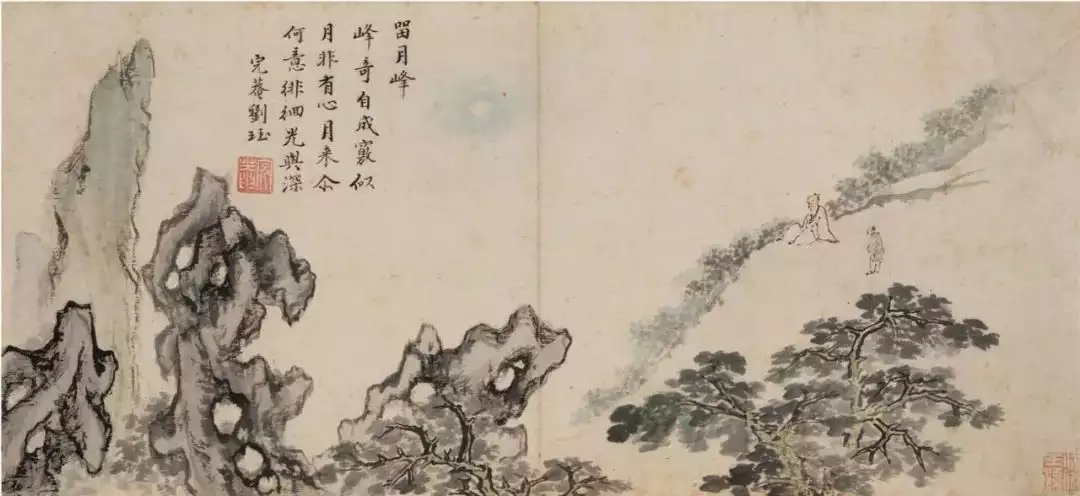 留月峰
峰奇自成竅似
月非有心月来尒
何意徘徊光與深
完菴劉珏